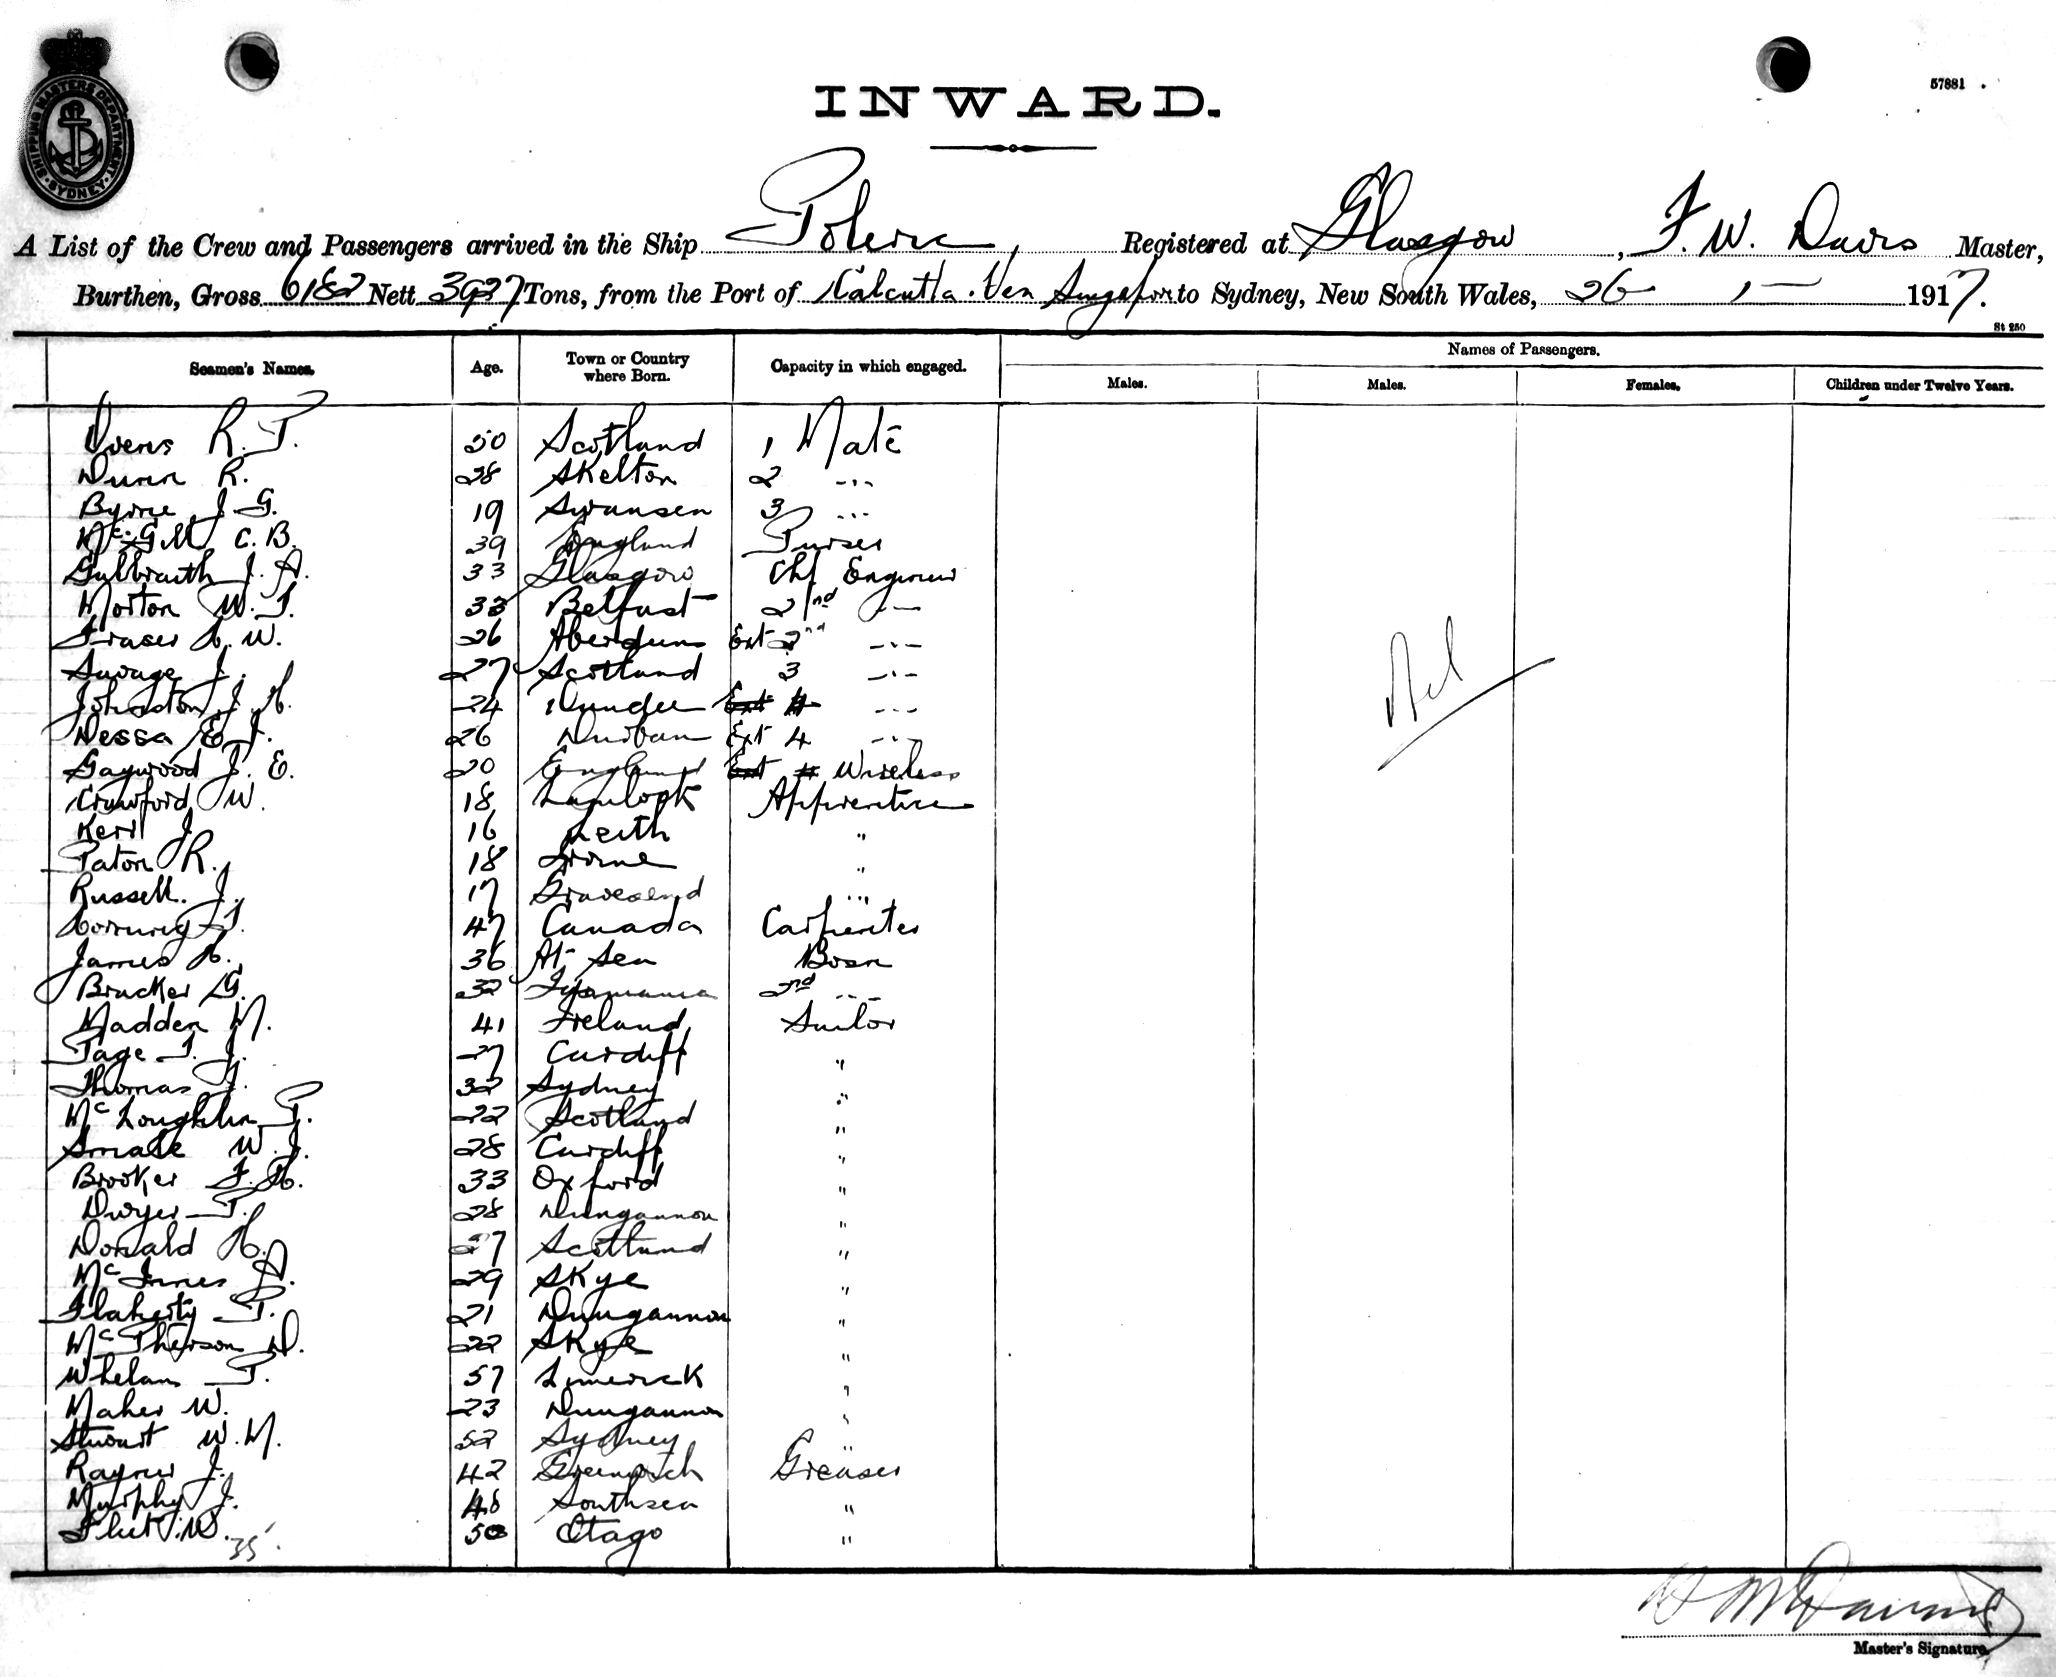 SHIPPING MASTERS DEPARTMENT · SYDNEY ·
57881
INWARD.
A List of the Crew and Passengers arrived in the Ship Poleric, Registered at Glasgow, F. W. Davis Master,
Burthen, Gross 6182 Nett 3937 Tons, from the Port of Calcutta Via Singapore to Sydney, New South Wales, 26 - 1 - 1917.
St 250
Seamen's Names. Age. Town or Country where Born. Capacity in which engaged. Names of Passengers.
Males. Males. Females. Children under Twelve Years.
Ovens R. P. 50 Scotland 1 Mate
Dunn R. 28 Skelton 2 -..-
Byrne J. G. 19 Swansea 3 -..-
C. B. 39 England Purser
Galbraith J. A. 33 Glasgow Chf Engineer
Morton W. T. 33 Belfast 2nd -..-
Fraser A. W. 26 Aberdeen Ext 2nd -..-
Savage J. 27 Scotland 3 -..-
Johnston J. H. 24 Dundee Ext 4 -..-
Dessa E. J. 26 Durban Ext 4 -..-
Gaywood J. E. 20 England Ext 4 Wireless
Crawford W. 18 Apprentice
Kerr J. 16 Leith "
Paton R. 18 "
Russell J. 17 Gravesend "
Corning T. 47 Canada Carpenter
James H. 36 At Sea Bosn
Brucker G. 32 2nd -..-
Madden M. 41 Ireland Sailor
Page T. J. 27 Cardiff "
Thomas J. 32 Sydney "
McLoughlin P. 22 Scotland "
Smale W. J. 28 Cardiff "
Brooker F. H. 33 Oxford "
Dwyer P. 28 Dungannon "
Donald H. 27 Scotland "
McInnes A. 29 Skye "
Flaherty P. 21 Dungannon "
McPherson D. 22 Skye "
Whelan P. 57 Limerick "
Maher W. 23 Dungannon "
Stewart W. M. 52 Sydney "
Rayner J. 42 Greenwich Greaser
Murphy J. 48 Southsea "
Fleet W. 50 Otago "
35
Nil
Master's Signature